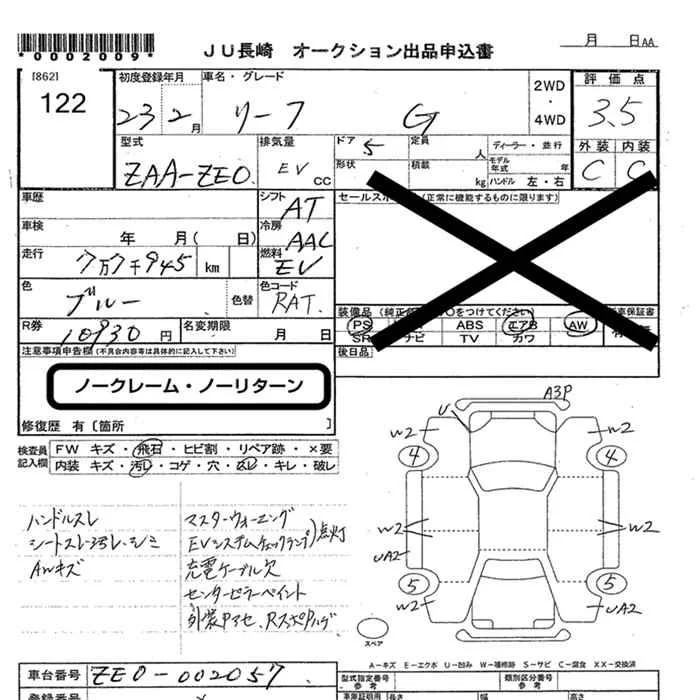 *0002009*
JU長崎 オークション出品申込書
月 日AA
[862]
122
初度登録年月
23 2月
車名・グレード
リーフ G
2WD
・
4WD
評価点
3.5
外装 内装
C C
型式
ZAA-ZE0
排気量
EV CC
ドア 5
定員 人
ディーラー・並行
形状
積載 kg
モデル年式 年
ハンドル 左・右
車歴
シフト AT
セールスポ (正常に機能するものに限ります)
車検 年 月( 日)
冷房 AAC
走行 7万7千945 km
燃料 EV
色 ブルー 色替
色コード RAT
装備品 (純正 ○をつけてください) 車保証書
PS ABS エアB AW 有
SR ナビ TV カワ
R券 10930円
名変期限 月 日
後日品
注意事項申告欄 (不具合内容等は具体的に記入して下さい)
ノークレーム・ノーリターン
修復歴 有〔箇所 〕
検査員記入欄
FW キズ・飛石・ヒビ割・リペア跡・×要
内装 キズ・汚レ・コゲ・穴・スレ・キレ・破レ
ハンドルスレ
シートスレ・汚レ・シミ
AWキズ
マスターウォーニング
EVシステムチェックランプ 点灯
充電ケーブル欠
センターピラーペイント
外装Pアセ、RスポPハゲ
A3P
U
W2 W2
4 4
W2 W2
UA2
5 5
W2 UA2
スペア
A-キズ E-エクボ U-凹み W-補修跡 S-サビ C-腐食 XX-交換済
車台番号 ZE0-002057
型式指定番号 参考
類別区分番号 参考
登録番号
車検証期用 長さ 幅 高さ